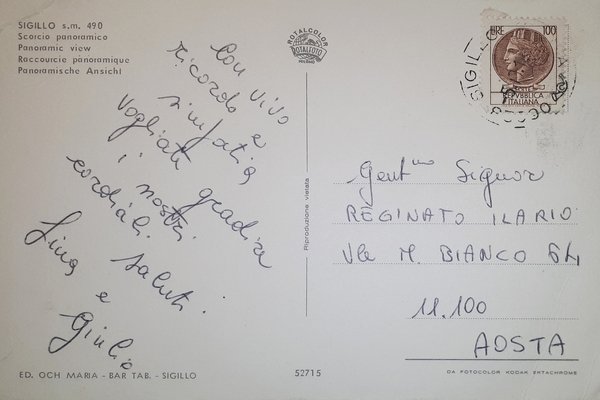 SIGILLO s.m. 490
Scorcio panoramico
Panoramic view
Raccourcie panoramique
Panoramische Ansicht
Con vivo
ricordo e
simpatia
vogliate gradire
i nostri
cordiali saluti.
Lina e
Giulio
ROTALCOLOR
ROTALFOTO
MILANO
Riproduzione vietata
LIRE 100
REPUBBLICA
ITALIANA
SIGILLO
Gent.mo Signor
REGINATO ILARIO
Vle M. BIANCO 64
11.100
AOSTA
ED. OCH MARIA - BAR TAB. - SIGILLO
52715
DA FOTOCOLOR KODAK EKTACHROME